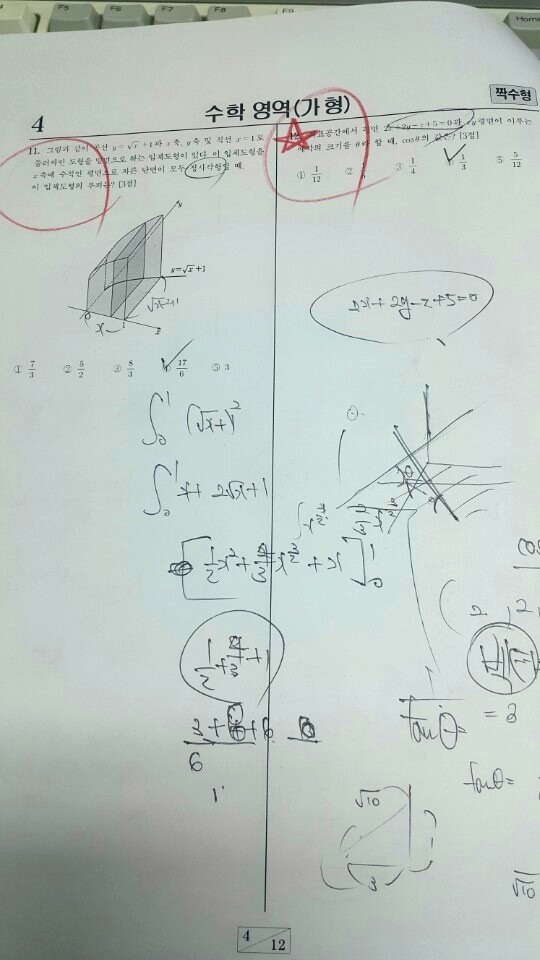 F5 F6 F7 F8 F9
Home
4
수학 영역(가 형)
짝수형
11. 그림과 같이 곡선 y=√x+1과 x축, y축 및 직선 x=1로
둘러싸인 도형을 밑면으로 하는 입체도형이 있다. 이 입체도형을
x축에 수직인 평면으로 자른 단면이 모두 정사각형일 때,
이 입체도형의 부피는? [3점]
y=√x+1
√x+1
x
1
① 7/3 ② 5/2 ③ 8/3 ④ 17/6 ⑤ 3
좌표공간에서 평면 2x+2y-z+5=0과 xy평면이 이루는
예각의 크기를 θ라 할 때, cosθ의 값은? [3점]
① 1/12 ② ③ 1/4 ④ 1/3 ⑤ 5/12
2x+2y-z+5=0
∫₀¹ (√x+1)²
∫₀¹ x+2√x+1
tanθ=
= 3
tanθ=
√10
3
√10
6
4 12